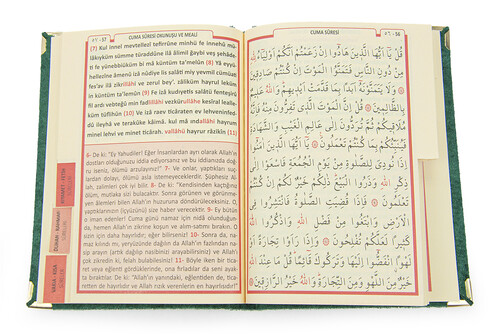 ٥٦ -56
CUMA SÛRESİ
قُلْ يَٓا اَيُّهَا الَّذ۪ينَ هَادُٓوا اِنْ زَعَمْتُمْ اَنَّكُمْ اَوْلِيَٓاءُ لِلّٰهِ
مِنْ دُونِ النَّاسِ فَتَمَنَّوُا الْمَوْتَ اِنْ كُنْتُمْ صَادِق۪ينَ
وَلَا يَتَمَنَّوْنَهُٓ اَبَدًا بِمَا قَدَّمَتْ اَيْد۪يهِمْ وَاللّٰهُ عَل۪يمٌ
بِالظَّالِم۪ينَ قُلْ اِنَّ الْمَوْتَ الَّذ۪ي تَفِرُّونَ مِنْهُ فَاِنَّهُ
مُلَاق۪يكُمْ ثُمَّ تُرَدُّونَ اِلٰى عَالِمِ الْغَيْبِ وَالشَّهَادَةِ
فَيُنَبِّئُكُمْ بِمَا كُنْتُمْ تَعْمَلُونَ يَٓا اَيُّهَا الَّذ۪ينَ اٰمَنُٓوا
اِذَا نُودِيَ لِلصَّلٰوةِ مِنْ يَوْمِ الْجُمُعَةِ فَاسْعَوْا اِلٰى
ذِكْرِ اللّٰهِ وَذَرُوا الْبَيْعَ ذٰلِكُمْ خَيْرٌ لَكُمْ اِنْ كُنْتُمْ
تَعْلَمُونَ فَاِذَا قُضِيَتِ الصَّلٰوةُ فَانْتَشِرُوا فِي
الْاَرْضِ وَابْتَغُوا مِنْ فَضْلِ اللّٰهِ وَاذْكُرُوا اللّٰهَ
كَث۪يرًا لَعَلَّكُمْ تُفْلِحُونَ وَاِذَا رَاَوْا تِجَارَةً اَوْ
لَهْوًا انْفَضُّٓوا اِلَيْهَا وَتَرَكُوكَ قَٓائِمًا قُلْ مَا عِنْدَ اللّٰهِ
خَيْرٌ مِنَ اللَّهْوِ وَمِنَ التِّجَارَةِ وَاللّٰهُ خَيْرُ الرَّازِق۪ينَ
٥٧ -57
CUMA SÛRESİ OKUNUŞU VE MEALİ
(7) Kul innel mevtellezî tefirrûne minhü fe innehû mü-
lâkıyküm sümme türaddûne ilâ âlimil ğaybi veş şehâde-
ti fe yünebbiüküm bi mâ küntüm ta'melûn (8) Yâ eyyü-
hellezîne âmenû izâ nûdiye lis salâti miy yevmil cümüati
fes'av ilâ zikrillâhi ve zerul bey'. zâliküm hayrul leküm
in küntüm ta'lemûn (9) Fe izâ kudıyetis salâtü fenteşirû
fil ardı vebteğû min fadlillâhi vezkürullâhe kesîral lealle-
küm tüflihûn (10) Ve izâ raev ticâraten ev lehveninfed-
dû ileyhâ ve terakûke kâimâ. kul mâ ındallâhi hayrum
minel lehvi ve minet ticârah. vallâhü hayrur râzikîn (11)
6- De ki: "Ey Yahudiler! Eğer insanlardan ayrı olarak Allah'ın
dostları olduğunuzu iddia ediyorsanız ve bu iddianızda doğ-
ru iseniz, ölümü arzulayın!" 7- Ve onlar, yaptıkları iş-
lerden dolayı, ölümü asla istemeyeceklerdir. Şüphesiz Al-
lah, zalimleri çok iyi bilir. 8- De ki: "Kendisinden kaçtığınız
ölüm, mutlaka sizi bulacaktır. Sonra görünen ve görünme-
yen âlemleri bilen Allah'ın huzuruna döndürüleceksiniz. O,
yaptıklarınızın (içyüzünü) size haber verecektir 9- Ey bütün
iman edenler! Cuma günü namaz için nidâ olunduğun-
da, hemen Allah'ın zikrine koşun ve alım-satımı bırakın. O
sizin için daha hayırlıdır, eğer bilirseniz! 10- Sonra da, na-
maz kılındı mı, yeryüzünde dağılın da Allah'ın fazlından na-
sip arayın (artık dağılıp nasibinizi arayabilirsiniz) ve Allah'ı
çok zikredin ki, felah bulabilesiniz! 11- Böyle iken bir tica-
ret veya eğlenti gördüklerinde, ona fırladılar da seni aya-
kta bıraktılar. De ki: "Allah'ın yanındaki, eğlentiden de, tica-
retten de hayırlıdır ve Allah rızık verenlerin en hayırlısıdır!"